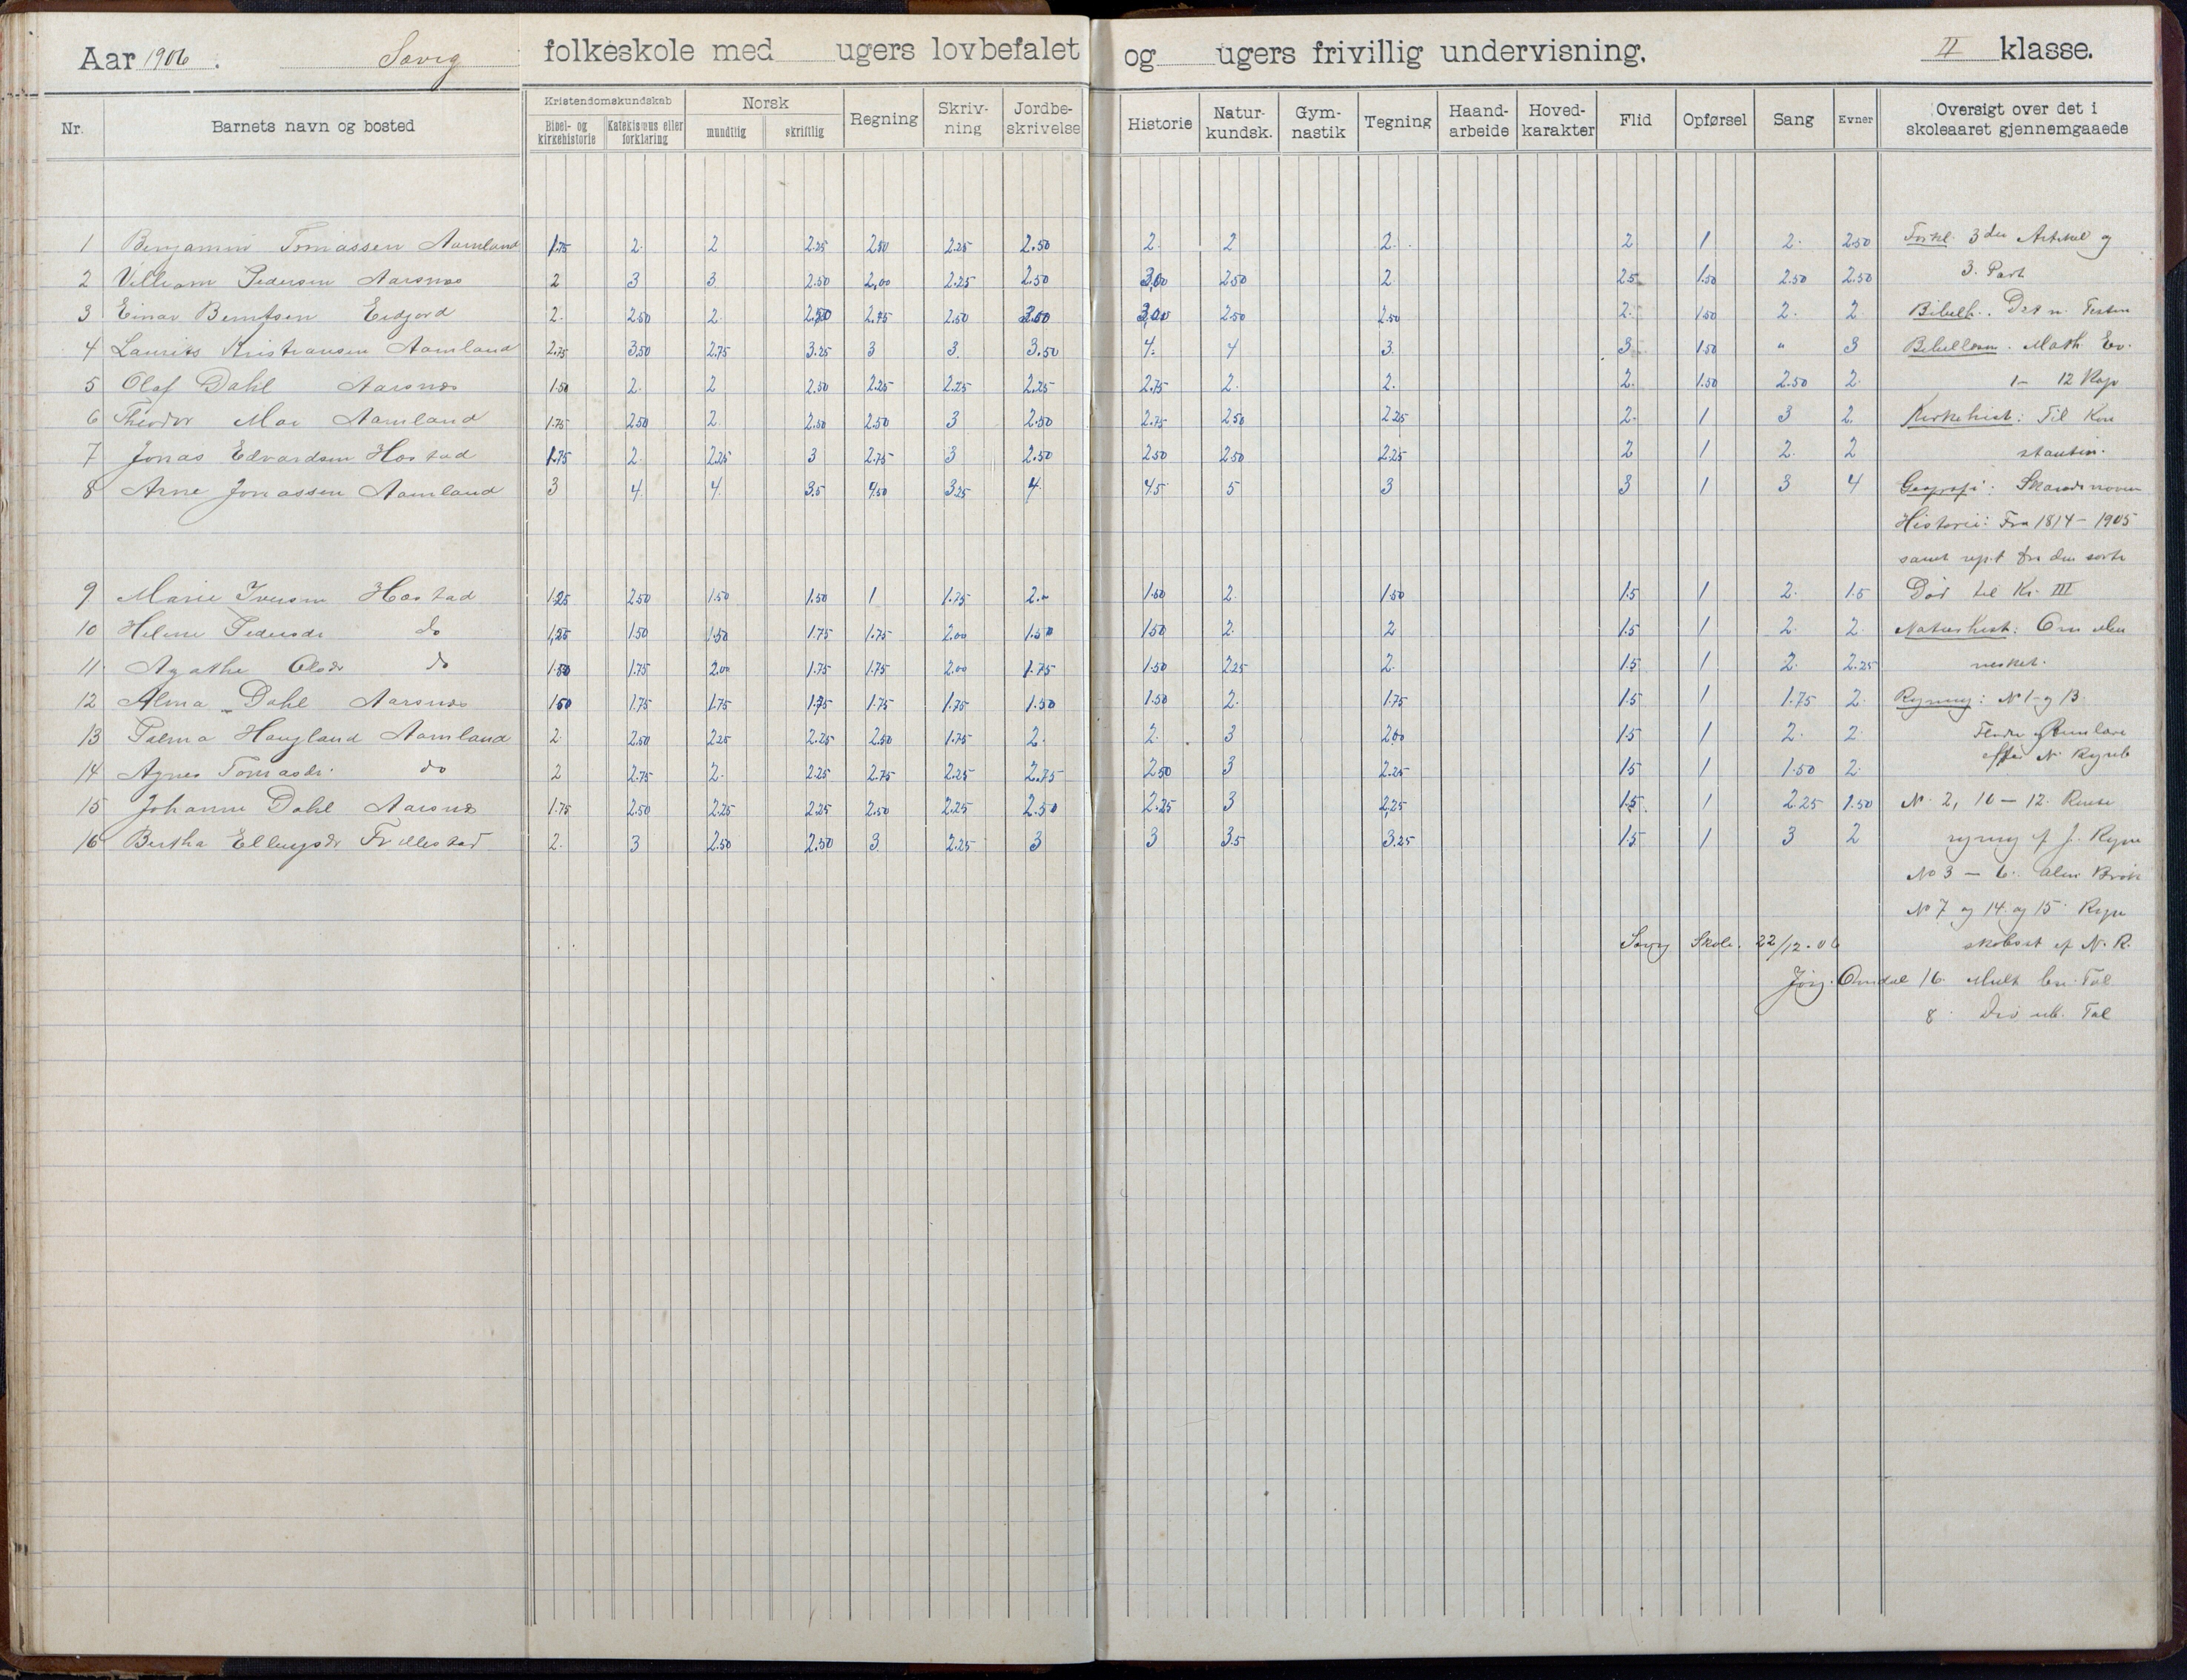 Aar 1906. Søvig folkeskole med ugers lovbefalet og ugers frivillig undervisning. II klasse.
Nr. Barnets navn og bosted Kristendomskundskab Bibel- og kirkehistorie Katekismus eller forklaring Norsk mundtlig skriftlig Regning Skriv-ning Jordbe-skrivelse Historie Natur-kundsk. Gym-nastik Tegning Haand-arbeide Hoved-karakter Flid Opførsel Sang Evner Oversigt over det i skoleaaret gjennemgaaede
1 Benjamin Tomassen Aamland 1.75 2. 2 2.25 2.50 2.25 2.50 2. 2 2. 2 1 2. 2.50 Forkl. 3die Artikel og
2 Villiam Pedersen Aarsnes 2 3 3 2.50 2,00 2.25 2.50 3,00 2.50 2 2.5 1.50 2.50 2.50 3. Part
3 Einar Berntsen Eidjord 2. 2.50 2. 2.50 2.75 2.50 3.50 3,00 2.50 2.50 2. 1.50 2. 2 Bibelh.. Det n. Testm
4 Laurits Kristiansen Aamland 2.75 3.50 2.75 3.25 3 3. 3.50 4. 4 3. 3 1.50 " 3 Bibellæsn. Math. Ev.
5 Olaf Dahl Aarsnes 1.50 2. 2 2.50 2.25 2.25 2.25 2.75 2. 2. 2. 1.50 2.50 2. 1 - 12 Kap
6 Theodor Moi Aamland 1.75 2.50 2. 2.50 2.50 3 2.50 2.75 2.50 2.25 2. 1 3 2. Kirkehist: Til Kon
7 Jonas Edvardsen Høstad 1.75 2. 2.25 3 2.75 3 2.50 2.50 2.50 2.25 2 1 2. 2 stantin.
8 Arne Jonassen Aamland 3 4. 4. 3.5 4.50 3.25 4. 4.5 5 3 3 1 3 4 Geografi: Skandinavien
Historie: Fra 1814 - 1905
samt rep.t fra den sorte
9 Marie Iversen Høstad 1.25 2.50 1.50 1.50 1 1.75 2.- 1.50 2. 1.50 1.5 1 2. 1.5 Død til Kr. III
10 Helene Pedersdr do 1,25 1.50 1.50 1.75 1.75 2.00 1.50 1.50 2. 2 1.5 1 2. 2. Naturhist: Om Men
11. Agathe Olsdr do 1.50 1.75 2.00 1.75 1.75 2.00 1.75 1.50 2.25 2. 1.5 1 2. 2.25 nesket.
12 Alma Dahl Aarsnes 1.50 1.75 1.75 1.75 1.75 1.75 1.50 1.50 2. 1.75 1.5 1 1.75 2. Regning: No 1 og 13.
13 Palma Haugland Aamland 2. 2.50 2.25 2.25 2.50 1.75 2. 2. 3 2.00 1.5 1 2. 2.
14 Agnes Tomasdr. do 2 2.75 2. 2.25 2.75 2.25 2.75 2.50 3 2.25 1.5 1 1.50 2. efter N. Regneb
15 Johanne Dahl Aarsnes 1.75 2.50 2.25 2.25 2.50 2.25 2.50 2.25 3 2.25 1.5 1 2.25 1.50 No. 2, 10 - 12. Rente
16 Bertha Ellingsdr Frøllestad 2. 3 2.50 2.50 3 2.25 3 3 3.5 3.25 1.5 1 3 2 regning
No 3 - 6. Alm Brøk
No 7 og 14. og 15. Regn
Søvig Skole. 22/12.06 N. R.
Jørg. Omdal 16. Mult. ben. Tal
8. Div ub. Tal